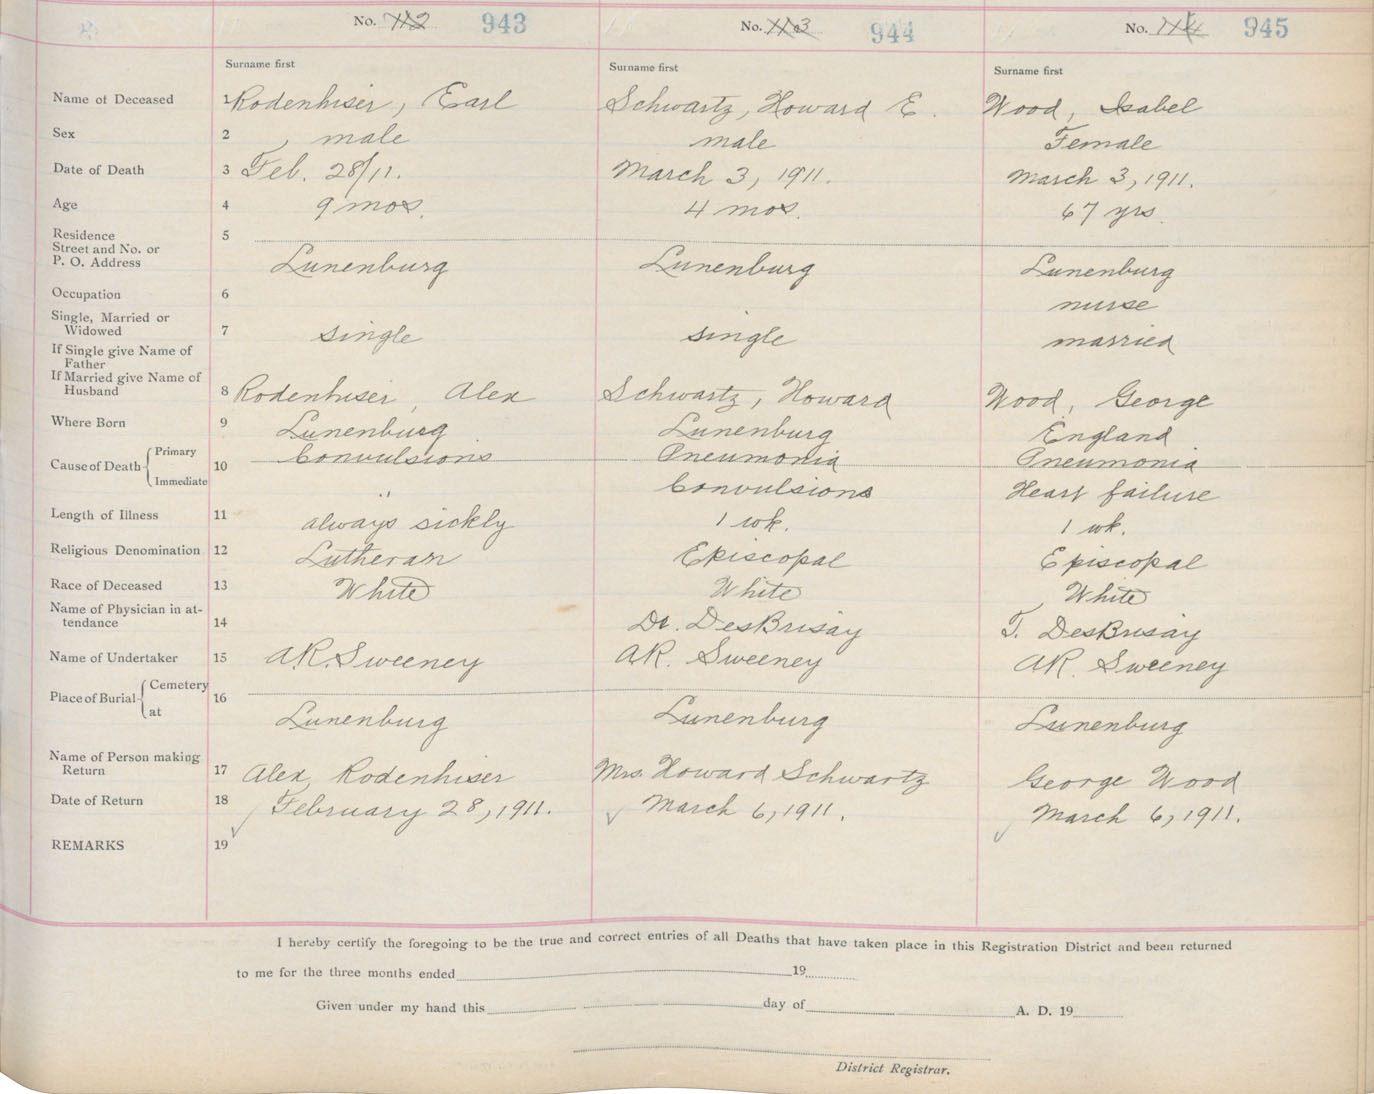 No. 112 943 No. 113 944 No. 114 945
Surname first Surname first Surname first
Name of Deceased 1 Rodenhiser, Earl Schwartz, Howard E. Wood, Isabel
Sex 2 male male Female
Date of Death 3 Feb. 28/11. March 3, 1911. March 3, 1911.
Age 4 9 mos. 4 mos. 67 yrs
Residence 5
Street and No. or
P. O. Address Lunenburg Lunenburg Lunenburg
Occupation 6 nurse
Single, Married or
Widowed 7 single single married
If Single give Name of
Father
If Married give Name of
Husband 8 Rodenhiser, Alex Schwartz, Howard Wood, George
Where Born 9 Lunenburg Lunenburg England
Cause of Death Primary 10 Convulsions Pneumonia Pneumonia
Immediate " Convulsions Heart failure
Length of Illness 11 always sickly 1 wk. 1 wk.
Religious Denomination 12 Lutheran Episcopal Episcopal
Race of Deceased 13 White White White
Name of Physician in at-
tendance 14 Dr. DesBrisay T. DesBrisay
Name of Undertaker 15 AR. Sweeney AR. Sweeney AR. Sweeney
Place of Burial Cemetery 16
at Lunenburg Lunenburg Lunenburg
Name of Person making
Return 17 Alex Rodenhiser Mrs. Howard Schwartz George Wood
Date of Return 18 February 28, 1911. March 6, 1911. March 6, 1911.
REMARKS 19
I hereby certify the foregoing to be the true and correct entries of all Deaths that have taken place in this Registration District and been returned
to me for the three months ended 19
Given under my hand this day of A. D. 19
District Registrar.